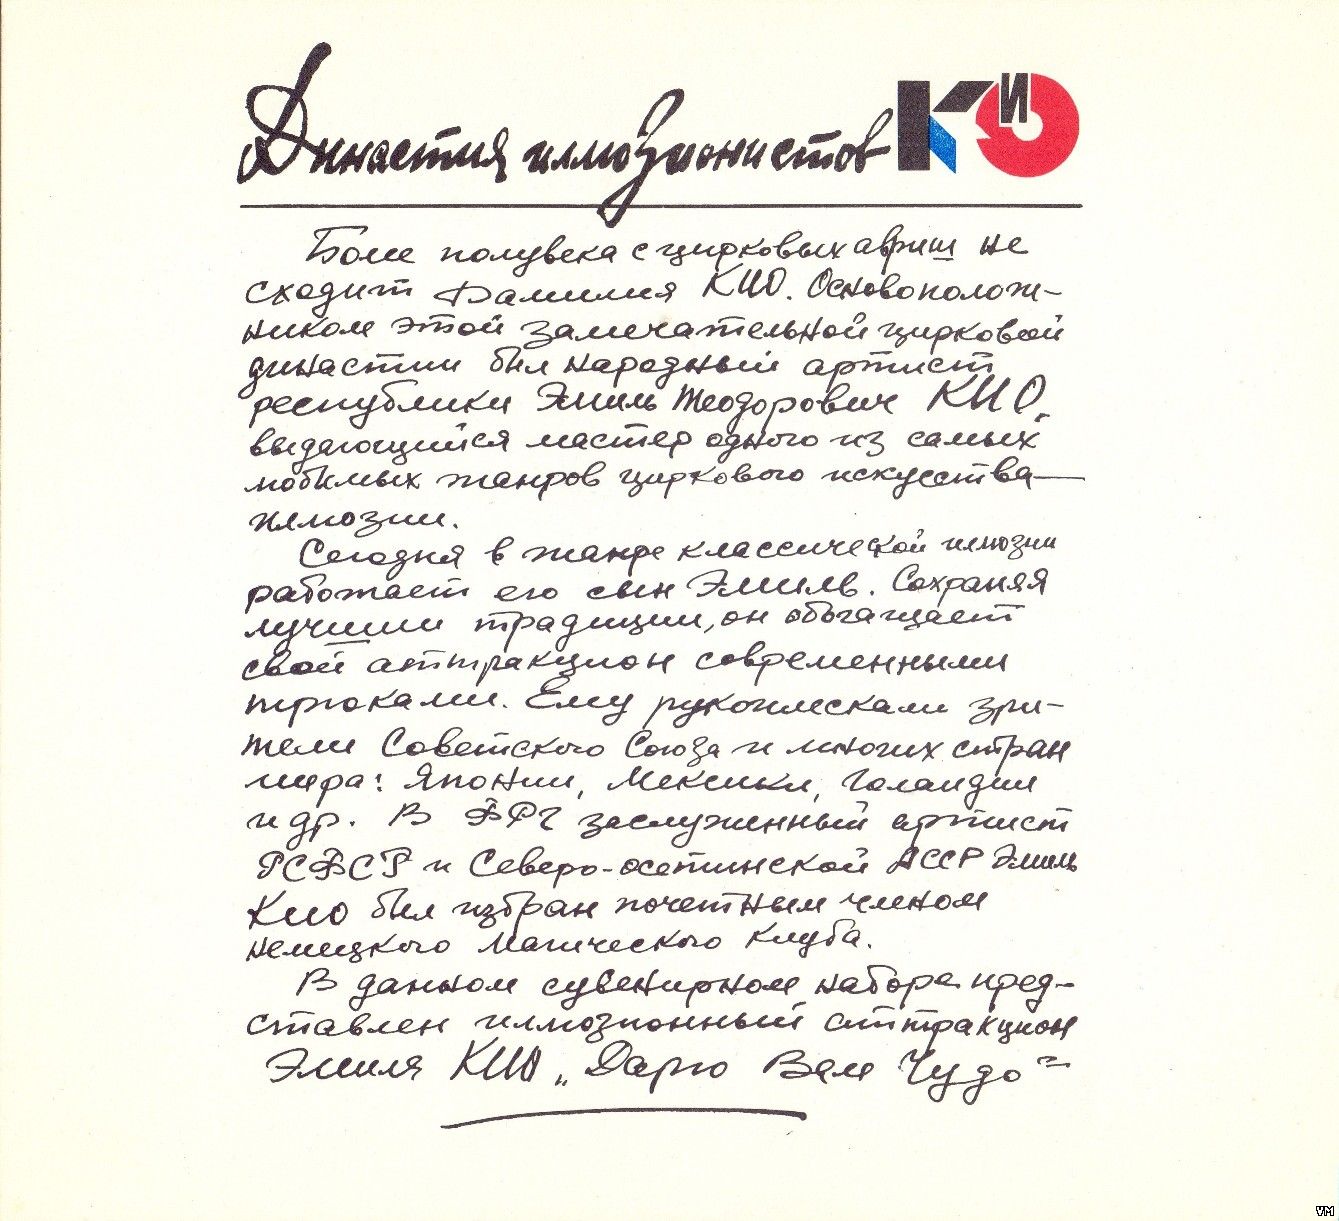 Династия иллюзионистов КИО
Более полувека с цирковых афиш не
сходит фамилия КИО. Основополож-
ником этой замечательной цирковой
династии был народный артист
республики Эмиль Теодорович КИО,
выдающийся мастер одного из самых
любимых жанров циркового искусства—
иллюзии.
Сегодня в жанре классической иллюзии
работает его сын Эмиль. Сохраняя
лучшие традиции, он обогащает
свой аттракцион современными
трюками. Ему рукоплескали зри-
тели Советского Союза и многих стран
мира: Японии, Мексики, Голандии
и др. В ФРГ заслуженный артист
РСФСР и Северо-осетинской АССР Эмиль
Кио был избран почетным членом
немецкого магического клуба.
В данном сувенирном наборе пред-
ставлен иллюзионный аттракцион
Эмиля КИО „Дарю Вам Чудо"
VM